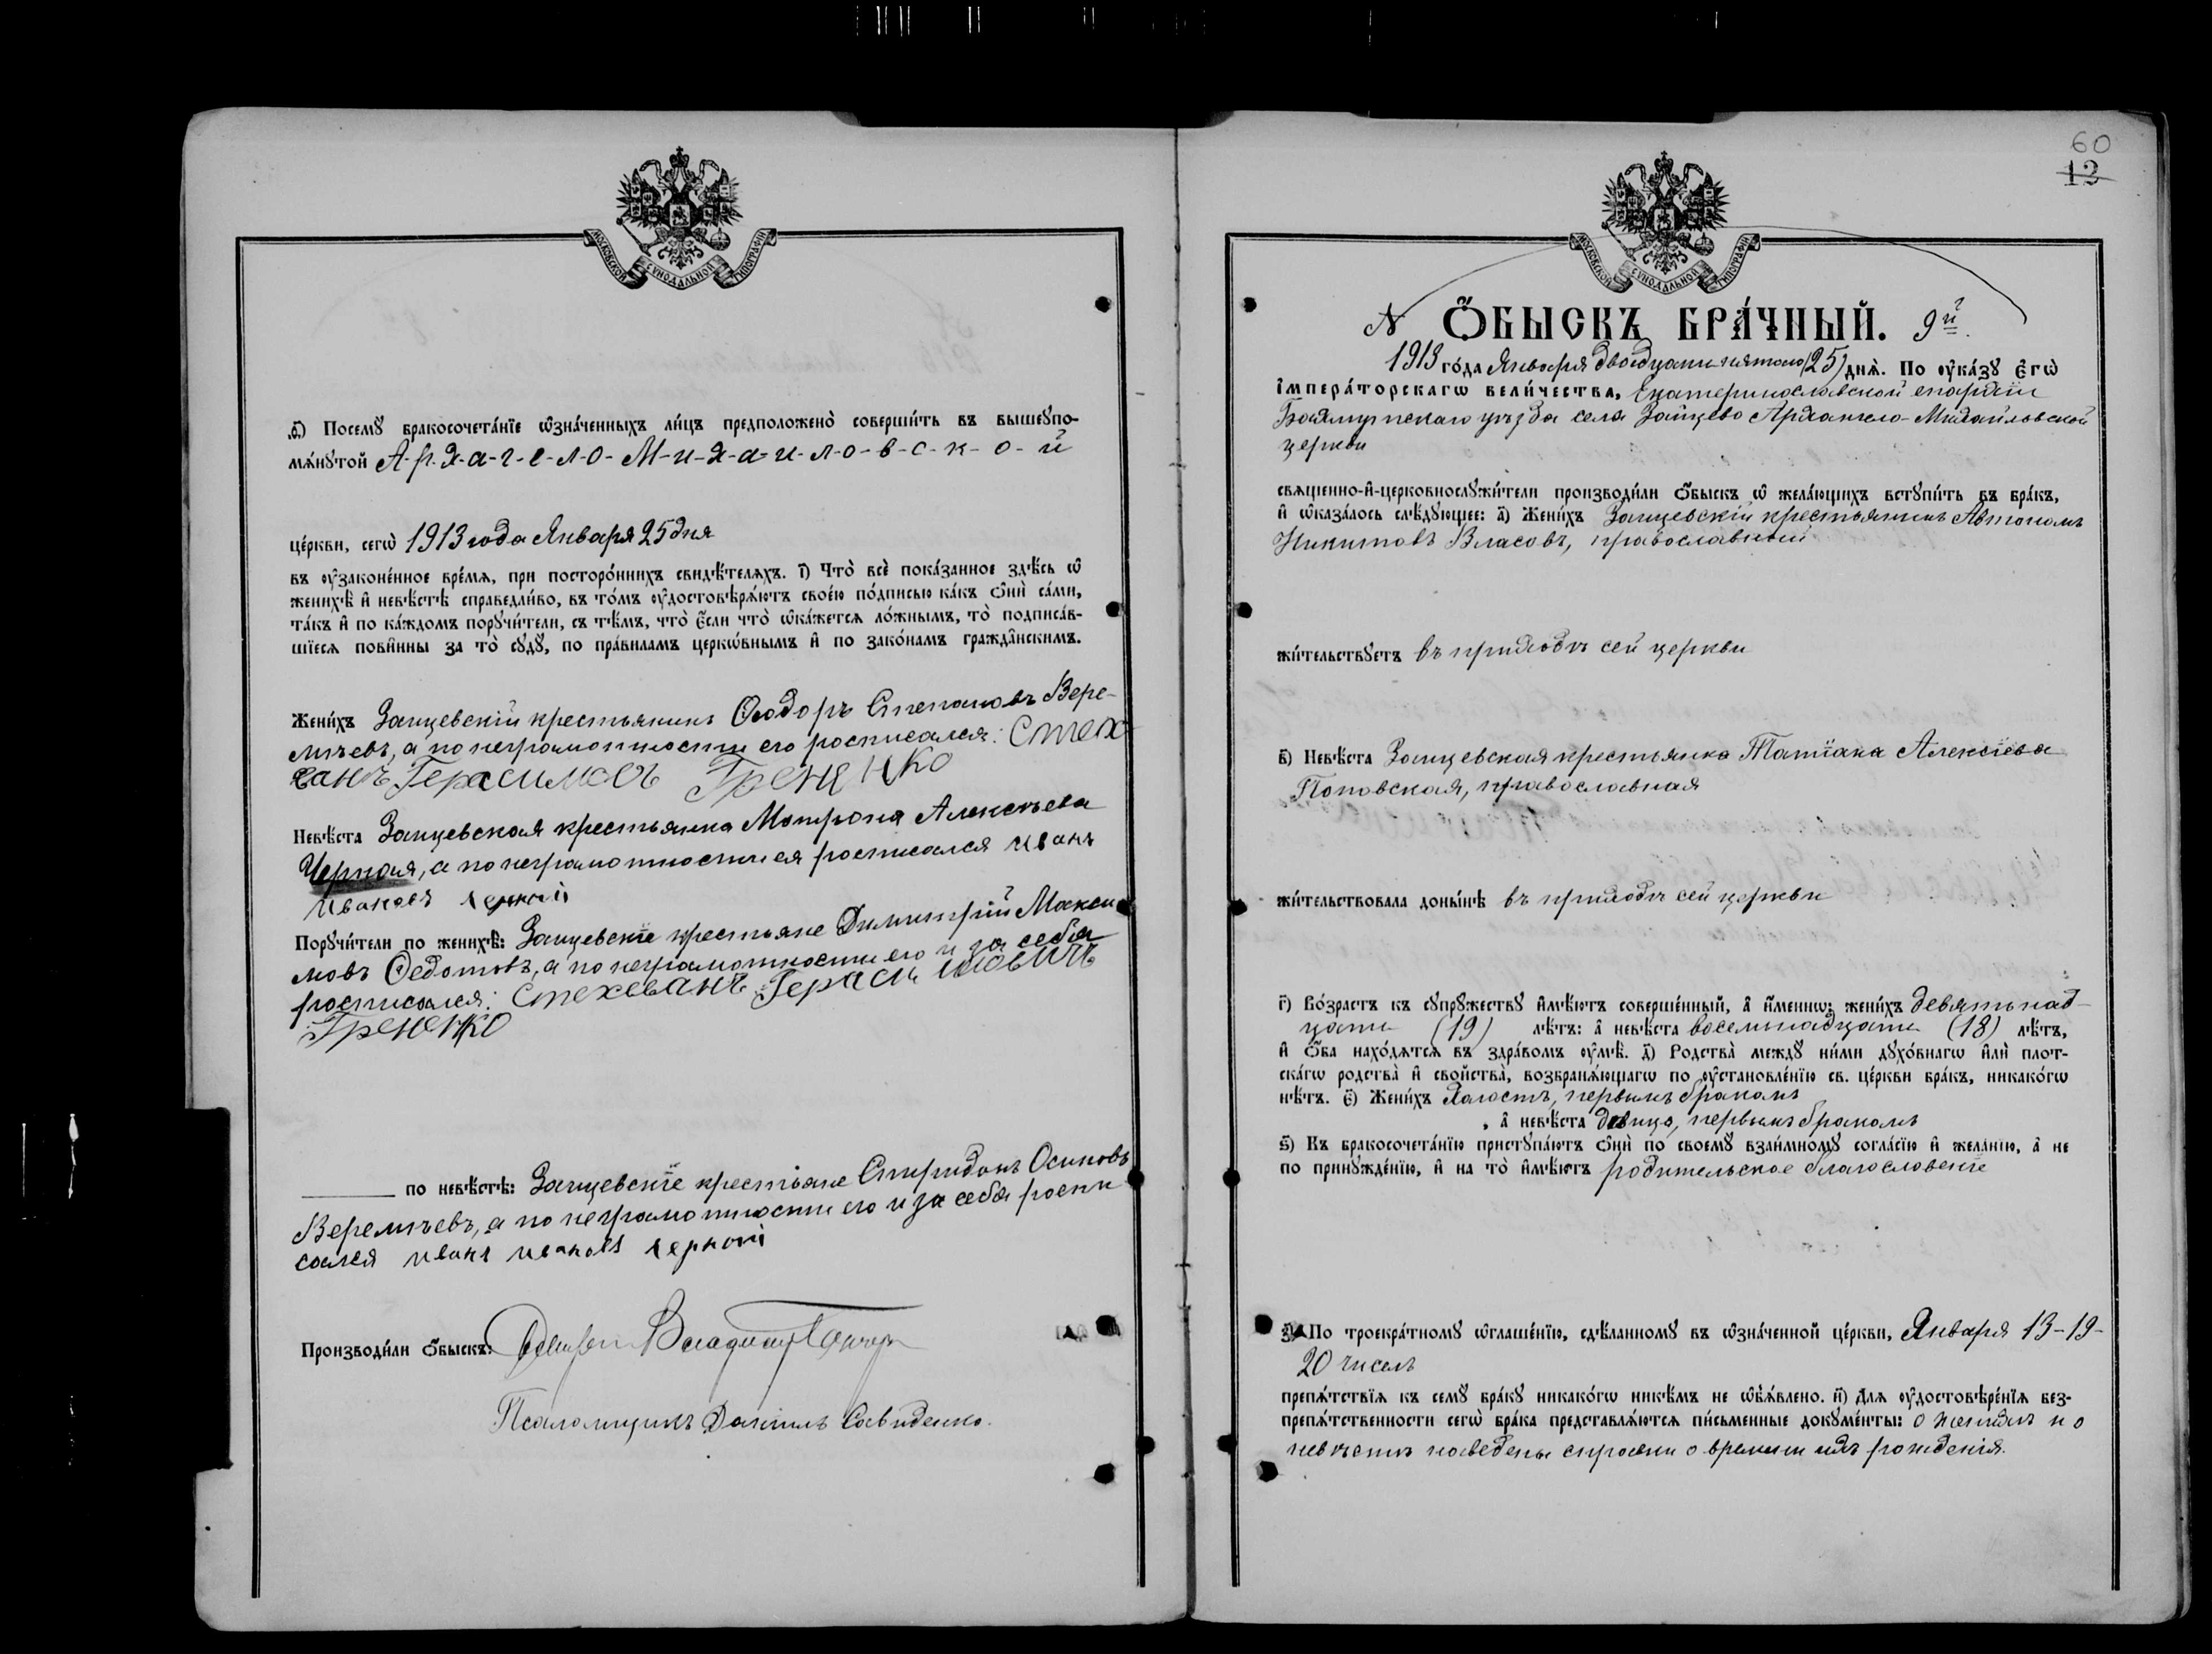 МОСКОВСКОЙ СѴНОДАЛЬНОЙ ТИПОГРАФІИ
ѳ҃) Посемꙋ̀ бракосочета́нїе ѡ҆зна́ченныхъ ли́цъ предположено̀ соверши́ть въ вышеꙋпо-
мѧ́нꙋтой А-р-х-а-г-е-л-о- М-и-х-а-и-л-о-в-с-к-о-й
це́ркви, сегѡ̀ 1913 года Января 25 дня
въ ᲂу҆зако́нное вре́мѧ, при посторо́ннихъ свидѣ́телѧхъ. і҃) Что̀ всѐ пока́занное здѣ́сь ѡ҆
женихѣ̀ и҆ невѣ́стѣ справедли́во, въ то́мъ ᲂу҆достовѣрѧ́ютъ свое́ю по́дписью ка́къ ѻ҆нѝ са́ми,
та́къ и҆ по ка́ждомъ порꙋчи́тели, съ тѣ́мъ, что̀ є҆́сли что̀ ѡ҆ка́жетсѧ ло́жнымъ, то̀ подписа́в-
шїесѧ пови́нны за то̀ сꙋдꙋ̀, по пра́виламъ церко́внымъ и҆ по зако́намъ гражда́нскимъ.
Жени́хъ Зайцевскій крестьянинъ Ѳеодоръ Степановъ Вере-
мѣевъ, а по неграмотности его росписался: Стех
ванъ Герасимовъ Гененко
Невѣ́ста Зайцевская крестьянка Матрона Алексѣева
Черная, а по неграмотности ея росписался Иванъ
Ивановъ Черной
Порꙋчи́тели по женихѣ̀: Зайцевскіе крестьяне Димитрій Макси
мовъ Ѳедотовъ, а по неграмотности его и за себя
росписался: Герасимовичъ
по невѣ́стѣ: Зайцевскіе крестьяне Спиридонъ Осиповъ
Веремѣевъ, а по неграмотности его и за себя роспи
сался Иванъ Ивановъ Черной
Производи́ли ѻ҆́быскъ: Владиміръ
Псаломщикъ Даніилъ Савиденко.
60
12
МОСКОВСКОЙ СѴНОДАЛЬНОЙ ТИПОГРАФІИ
N ѺБЫСКЪ БРА́ЧНЫЙ. 9й
1913 го́да Января двадцать пятаго (25) днѧ̀. По ᲂу҆ка́зꙋ Є҆гѡ̀
І҆мпера́торскагѡ вели́чества, Екатеринославской епархіи
Бахмутскаго уѣзда села Зайцево Архангело-Михайловской
церкви
свѧще́нно-и҆-церковнослꙋжи́тели производи́ли ѻ҆́быскъ ѡ҆ жела́ющихъ встꙋпи́ть въ бра́къ,
и҆ ѡ҆каза́лось слѣ́дꙋющее: а҃) Жени́хъ Зайцевскій крестьянинъ Автономъ
Никитовъ Власовъ, православный
жи́тельствꙋетъ въ приходѣ сей церкви
в҃) Невѣ́ста Зайцевская крестьянка Татіана Алексіева
Поповская, православная
жи́тельствовала доны́нѣ въ приходѣ сей церкви
г҃) Во́зрастъ къ сꙋпрꙋ́жествꙋ и҆мѣ́ютъ соверше́нный, а҆ и҆́меннѡ: жени́хъ девятьнад-
цати (19) лѣ́тъ: а҆ невѣ́ста восемьнадцати (18) лѣ́тъ,
и҆ ѻ҆́ба нахо́дѧтсѧ въ здра́вомъ ᲂу҆мѣ̀. д҃) Родства̀ междꙋ̀ ни́ми дꙋхо́внагѡ и҆лѝ плот-
ска́гѡ родства̀ и҆ сво́йства, возбранѧ́ющагѡ по ᲂу҆становле́нїю св. це́ркви бра́къ, никако́гѡ
нѣ́тъ. є҃) Жени́хъ Холостъ, первымъ бракомъ
, а҆ невѣ́ста дѣвица, первымъ бракомъ
ѕ҃) Къ бракосочета́нїю пристꙋпа́ютъ ѻ҆нѝ по своемꙋ̀ взаи́мномꙋ согла́сїю и҆ жела́нїю, а҆ не
по принꙋжде́нїю, и҆ на то̀ и҆мѣ́ютъ родительское благословеніе
з҃) По троекра́тномꙋ ѡ҆глаше́нїю, сдѣ́ланномꙋ въ ѡ҆зна́ченной це́ркви, Января 13-19-
20 чиселъ
препѧ́тствїѧ къ семꙋ̀ бра́кꙋ никако́гѡ никѣ́мъ не ѡ҆бъѧ́влено. и҃) Длѧ ᲂу҆достовѣре́нїѧ без-
препѧ́тственности сегѡ̀ бра́ка представлѧ́ютсѧ пи́сьменные докꙋме́нты: о женихѣ и о
невѣстѣ наведены справки о времени ихъ рожденія.